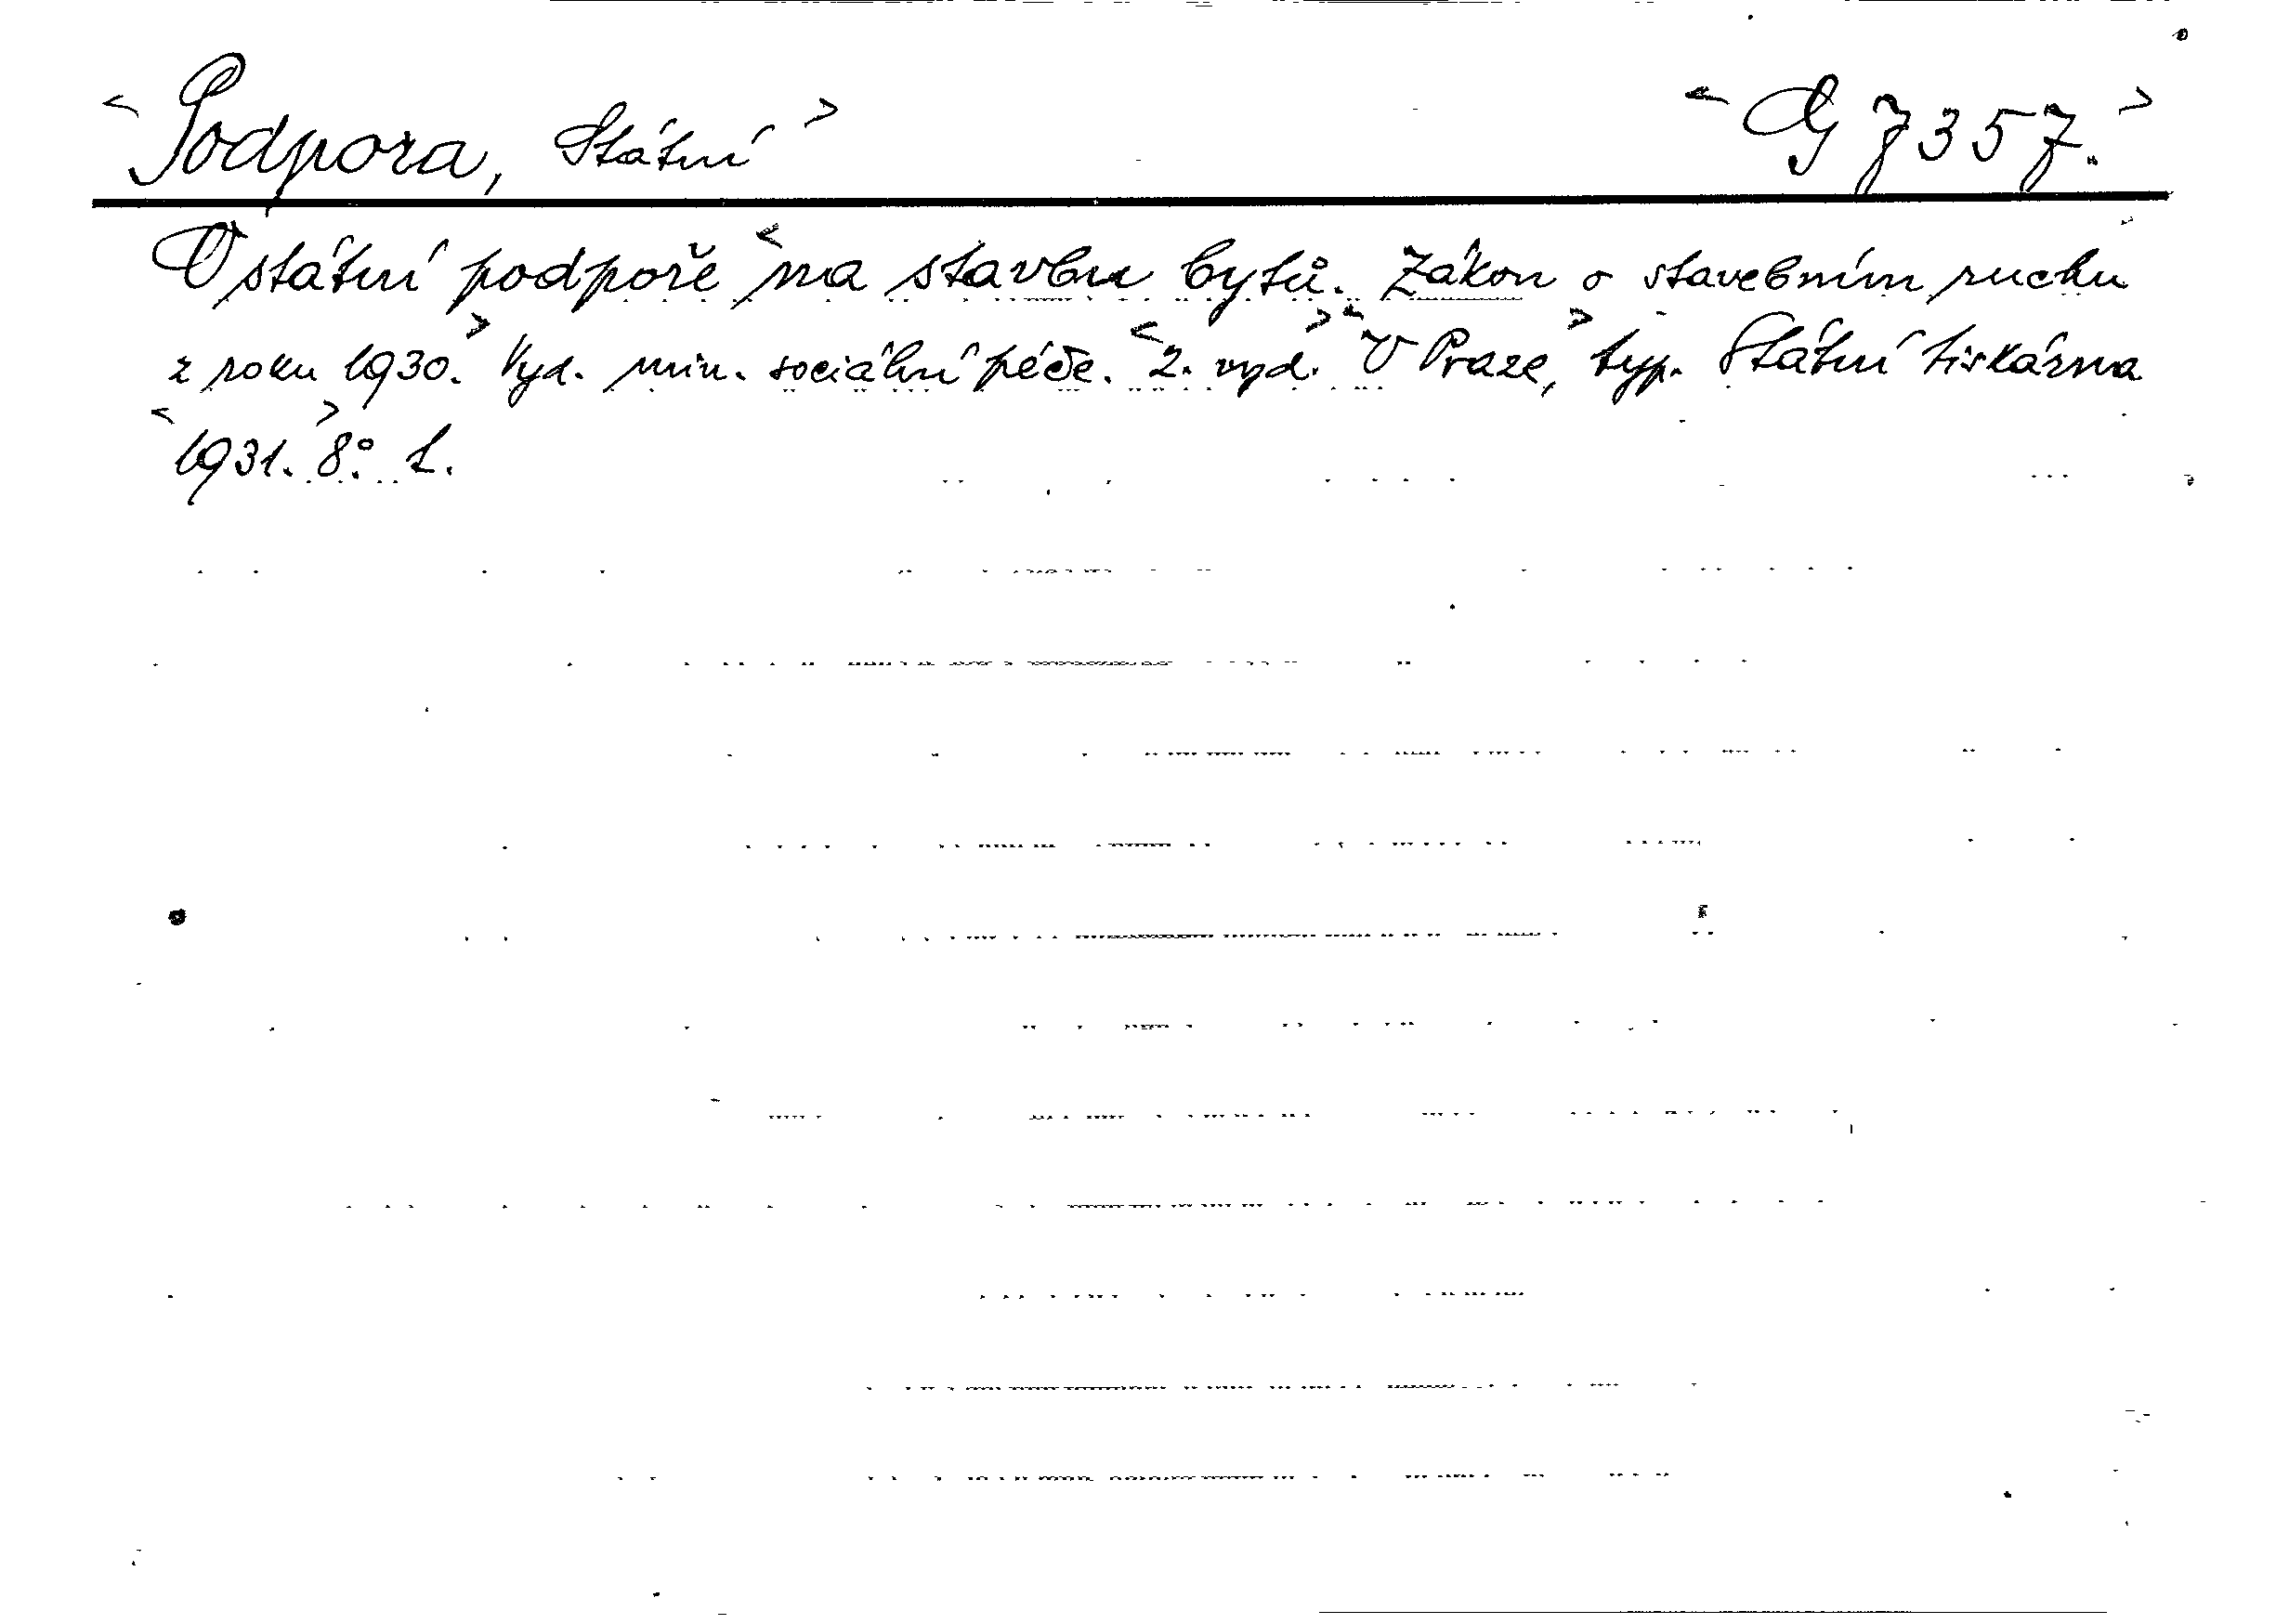 <Podpora, Státní> <G 7357.>
O státní podpoře <na stavbu bytů. Zákon o stavebním ruchu
z roku 1930.> Vyd. min. sociální péče. <2. vyd.> <V Praze,> typ. Státní tiskárna
<1931.> 8°. 1.